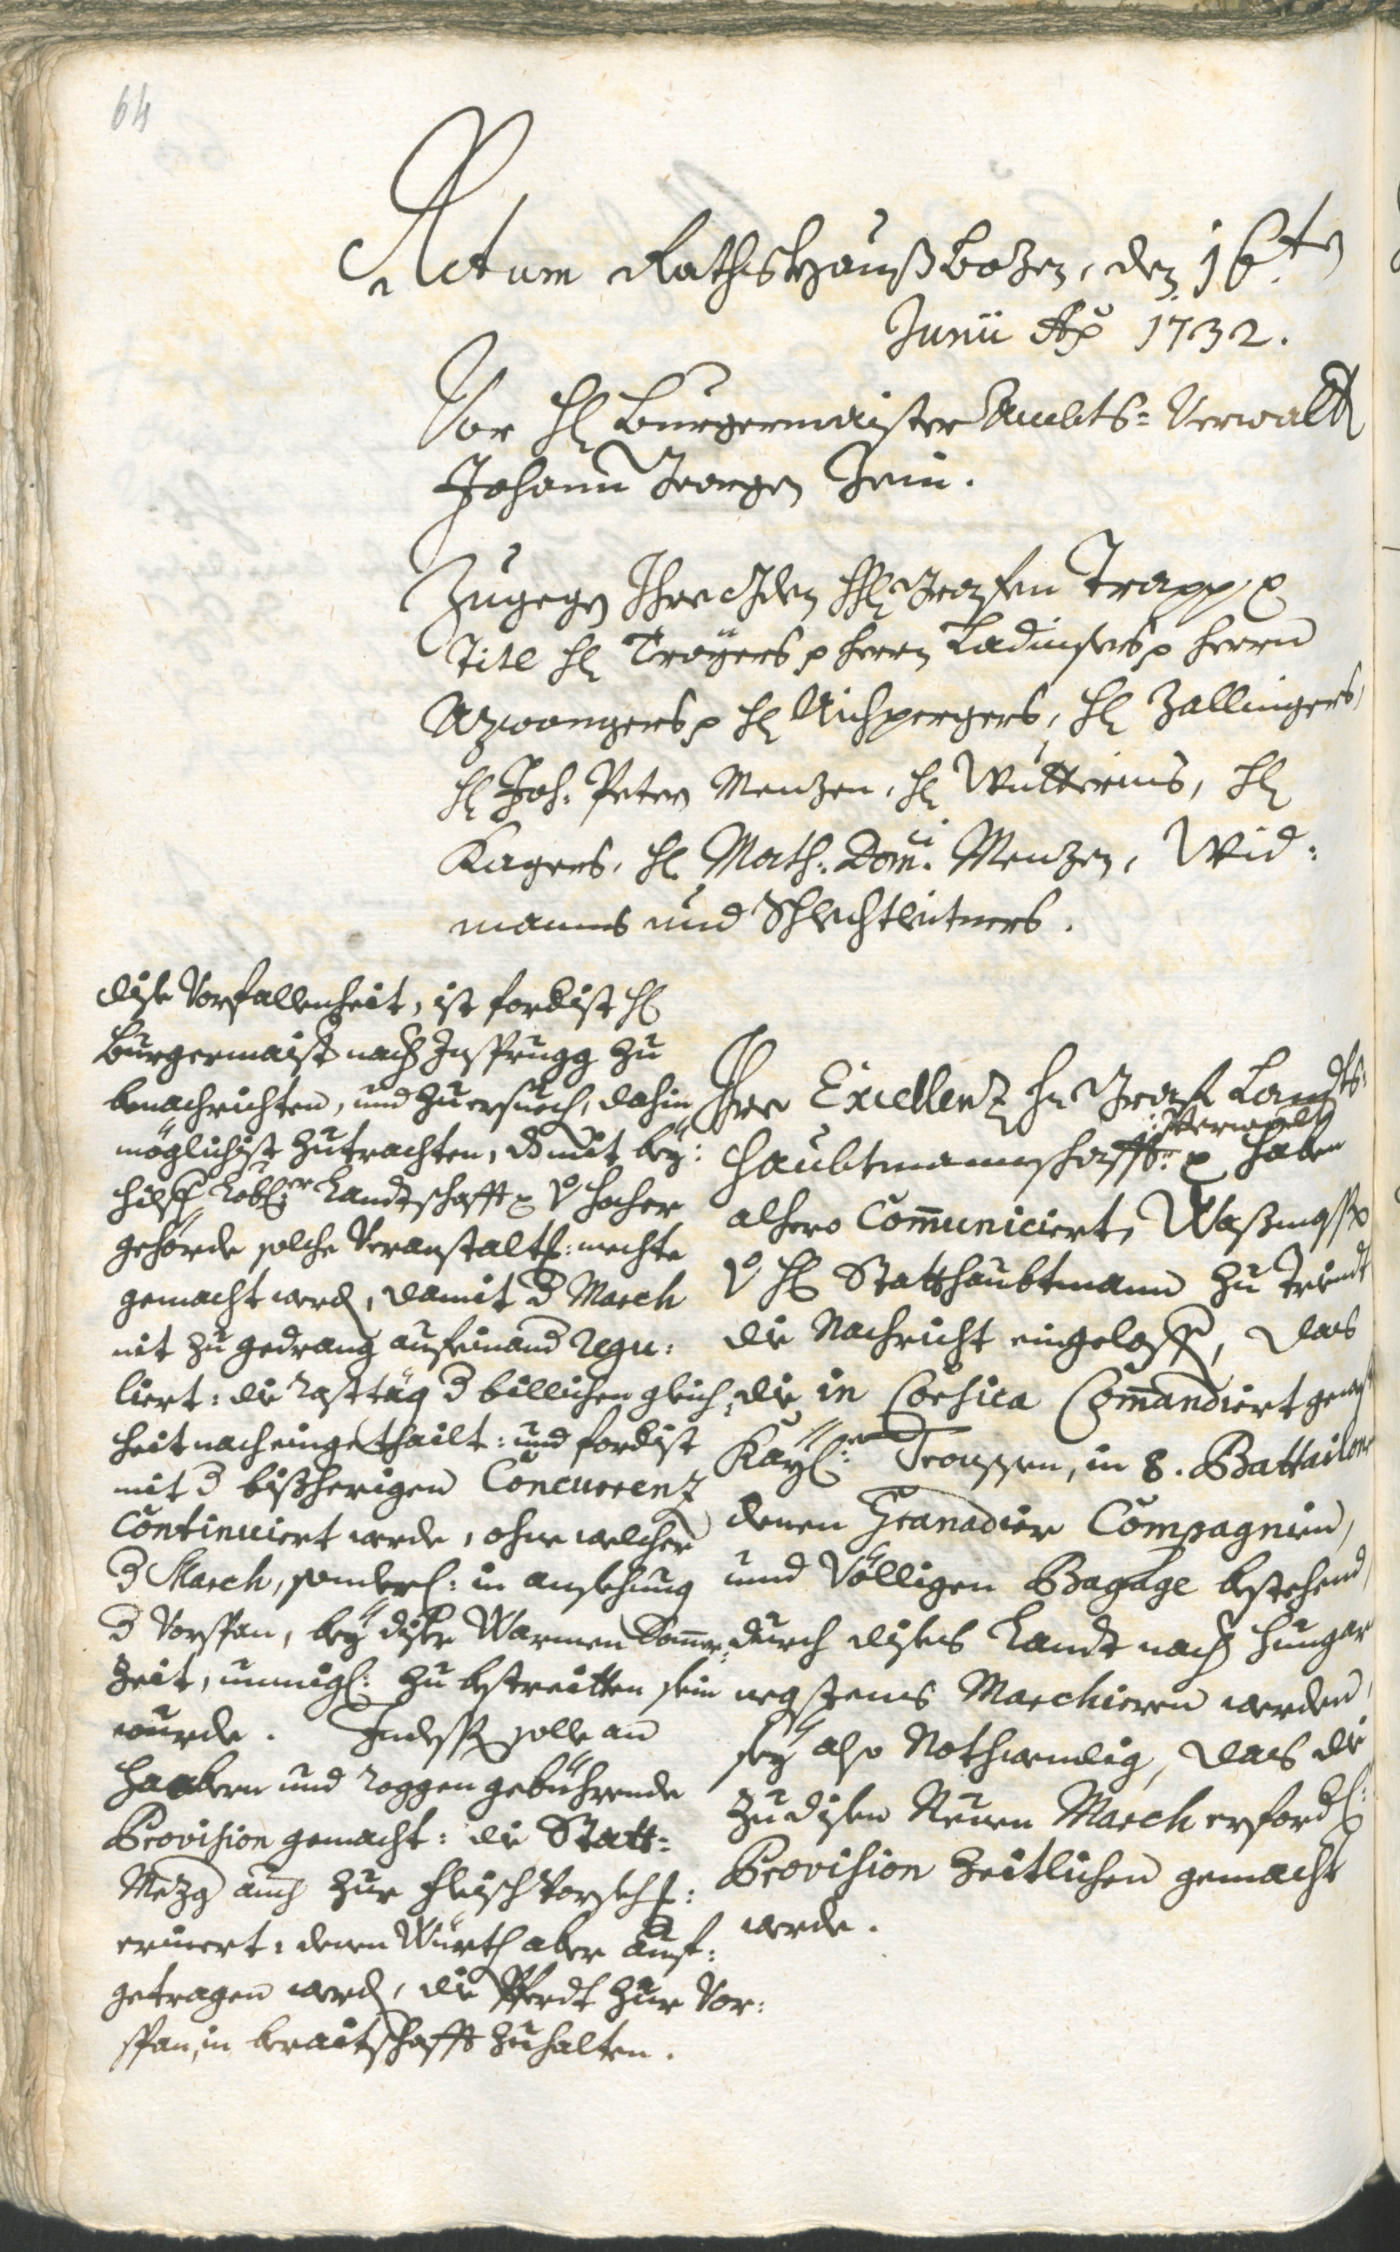 64
Actum Rathshauß Bozen, den 16.ten
Junii Ao 1732.
Vor H: Burgermaister Ambts=Verwalter
Johann Georgen Grin.
Zugegen Ihro H: Grafen Trapp p
Titl H: Troyers p Herrn Ladinsers p Herrn
Azwangers p H: Aichpergers, H: Zallingers,
H: Joh. Peter Menzen, H: Wutterins, H:
Kagers, H: Math. Dom. Menzen, Wid=
manns und Schlechtleitners.
Ihro Excellenz Hn Graf Landts=
haubtmannschafft= Verwalter p haben
alhero Communiciert, Waßmassen
v H: Statthaubtmann zu Triendt
die Nachricht eingeloffen, das
die in Corsica Commandiert gewest
Kayl: Trouppen, in 8. Battailons
denen Granadier Compagnien,
und Völligen Bagage bestehend,
durch dises Landt nach Hungarn
negstens Marchieren werden,
sey also Nothwendig, das die
zu disen Neuen March erforderl:
Provision zeitlichen gemacht
werde.
dise Vorfallenheit, ist fordist H:
Burgermaister nach Insprugg zu
benachrichten, und zu ersuechen, dahin
möglichist zutrachten, damit bey=
hilff Löbl:er Landtschafft p v hocher
gehörde solche Veranstaltung: mechte
gemacht werden, damit der March
nit zu gedrang aufeinander regu=
liert: die rasttäg der billichen gleich=
heit nach eingethailt: und fordist
mit der bißherigen Concurrenz
Continuiert werde, ohne welcher
der March, sonderl: in ansehung
der Vorspan, bey diser Warmen Somer=
Zeit, unmigl: zu bestreitten sein
wurde. Indessen solle an
Haabern und roggen gebührende
Provision gemacht: die Statt=
Mezg auch zur fleisch Vorsehung:
erinert: denen Würth aber auf=
getragen werden, die Pferdt zur Vor=
span, in beraitschafft zuhalten.